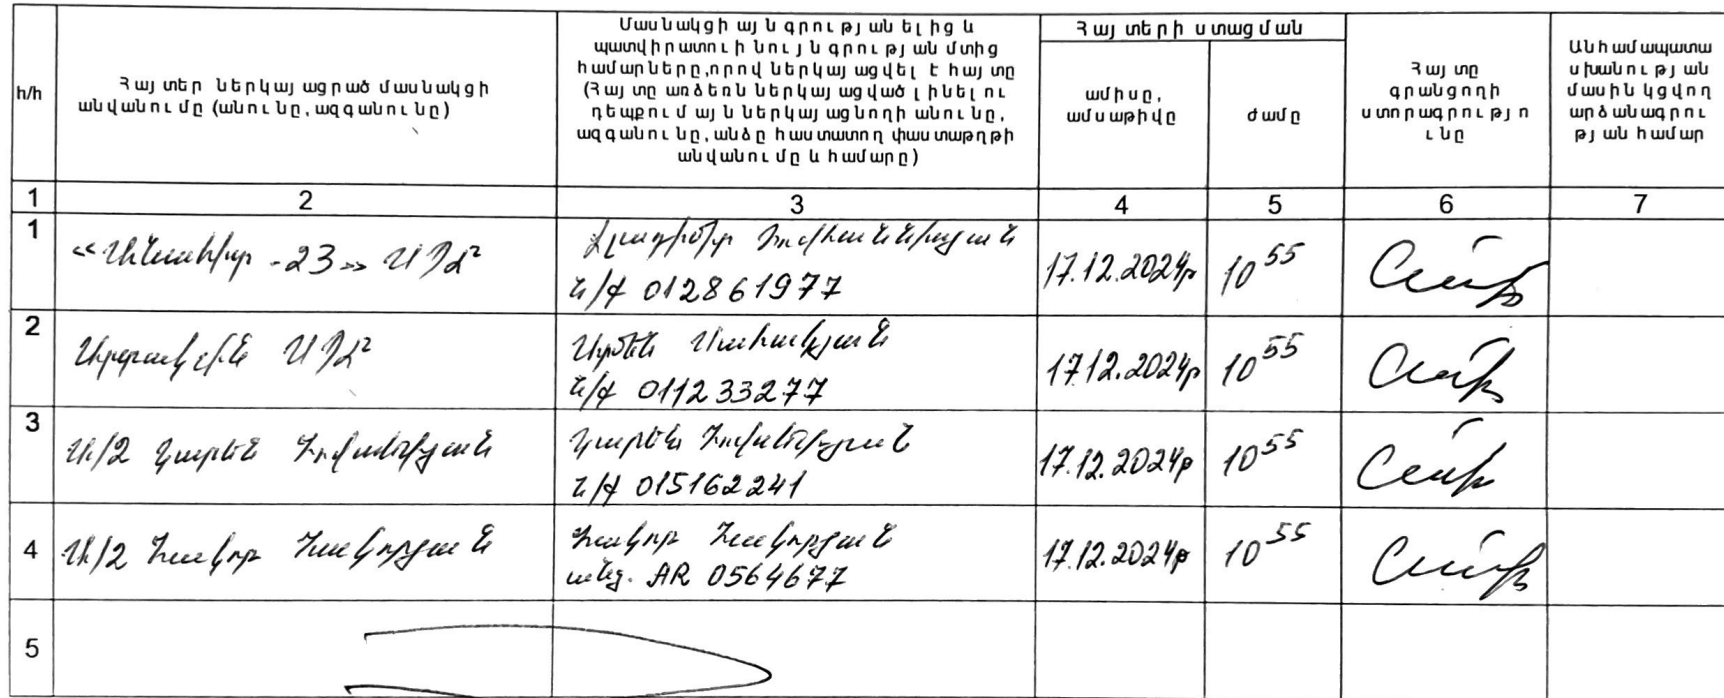 հ/հ
Հայտեր ներկայացրած մասնակցի
անվանումը (անունը, ազգանունը)
Մասնակցի այն գրության ելից և
պատվիրատուի նույն գրության մտից
համարները,որով ներկայացվել է հայտը
(Հայտը առձեռն ներկայացված լինելու
դեպքում այն ներկայացնողի անունը,
ազգանունը, անձը հաստատող փաստաթղթի
անվանումը և համարը)
Հայտերի ստացման
ամիսը,
ամսաթիվը
ժամը
Հայտը
գրանցողի
ստորագրությո
ւնը
Անհամապատա
սխանության
մասին կցվող
արձանագրու
թյան համար
1 2 3 4 5 6 7
1
-23» ՍՊԸ
Հովհաննիսյան
ն/ք 012861977
17.12.2024թ 10 55
2
ՍՊԸ
Արմեն Սահակյան
ն/ք 011233277
17.12.2024թ 10 55
3
Ա/Ձ Կարեն
Կարեն
ն/ք 015162241
17.12.2024թ 10 55
4
Ա/Ձ Հակոբ Հակոբյան
Հակոբ Հակոբյան
անձ. AR 0564677
17.12.2024թ 10 55
5